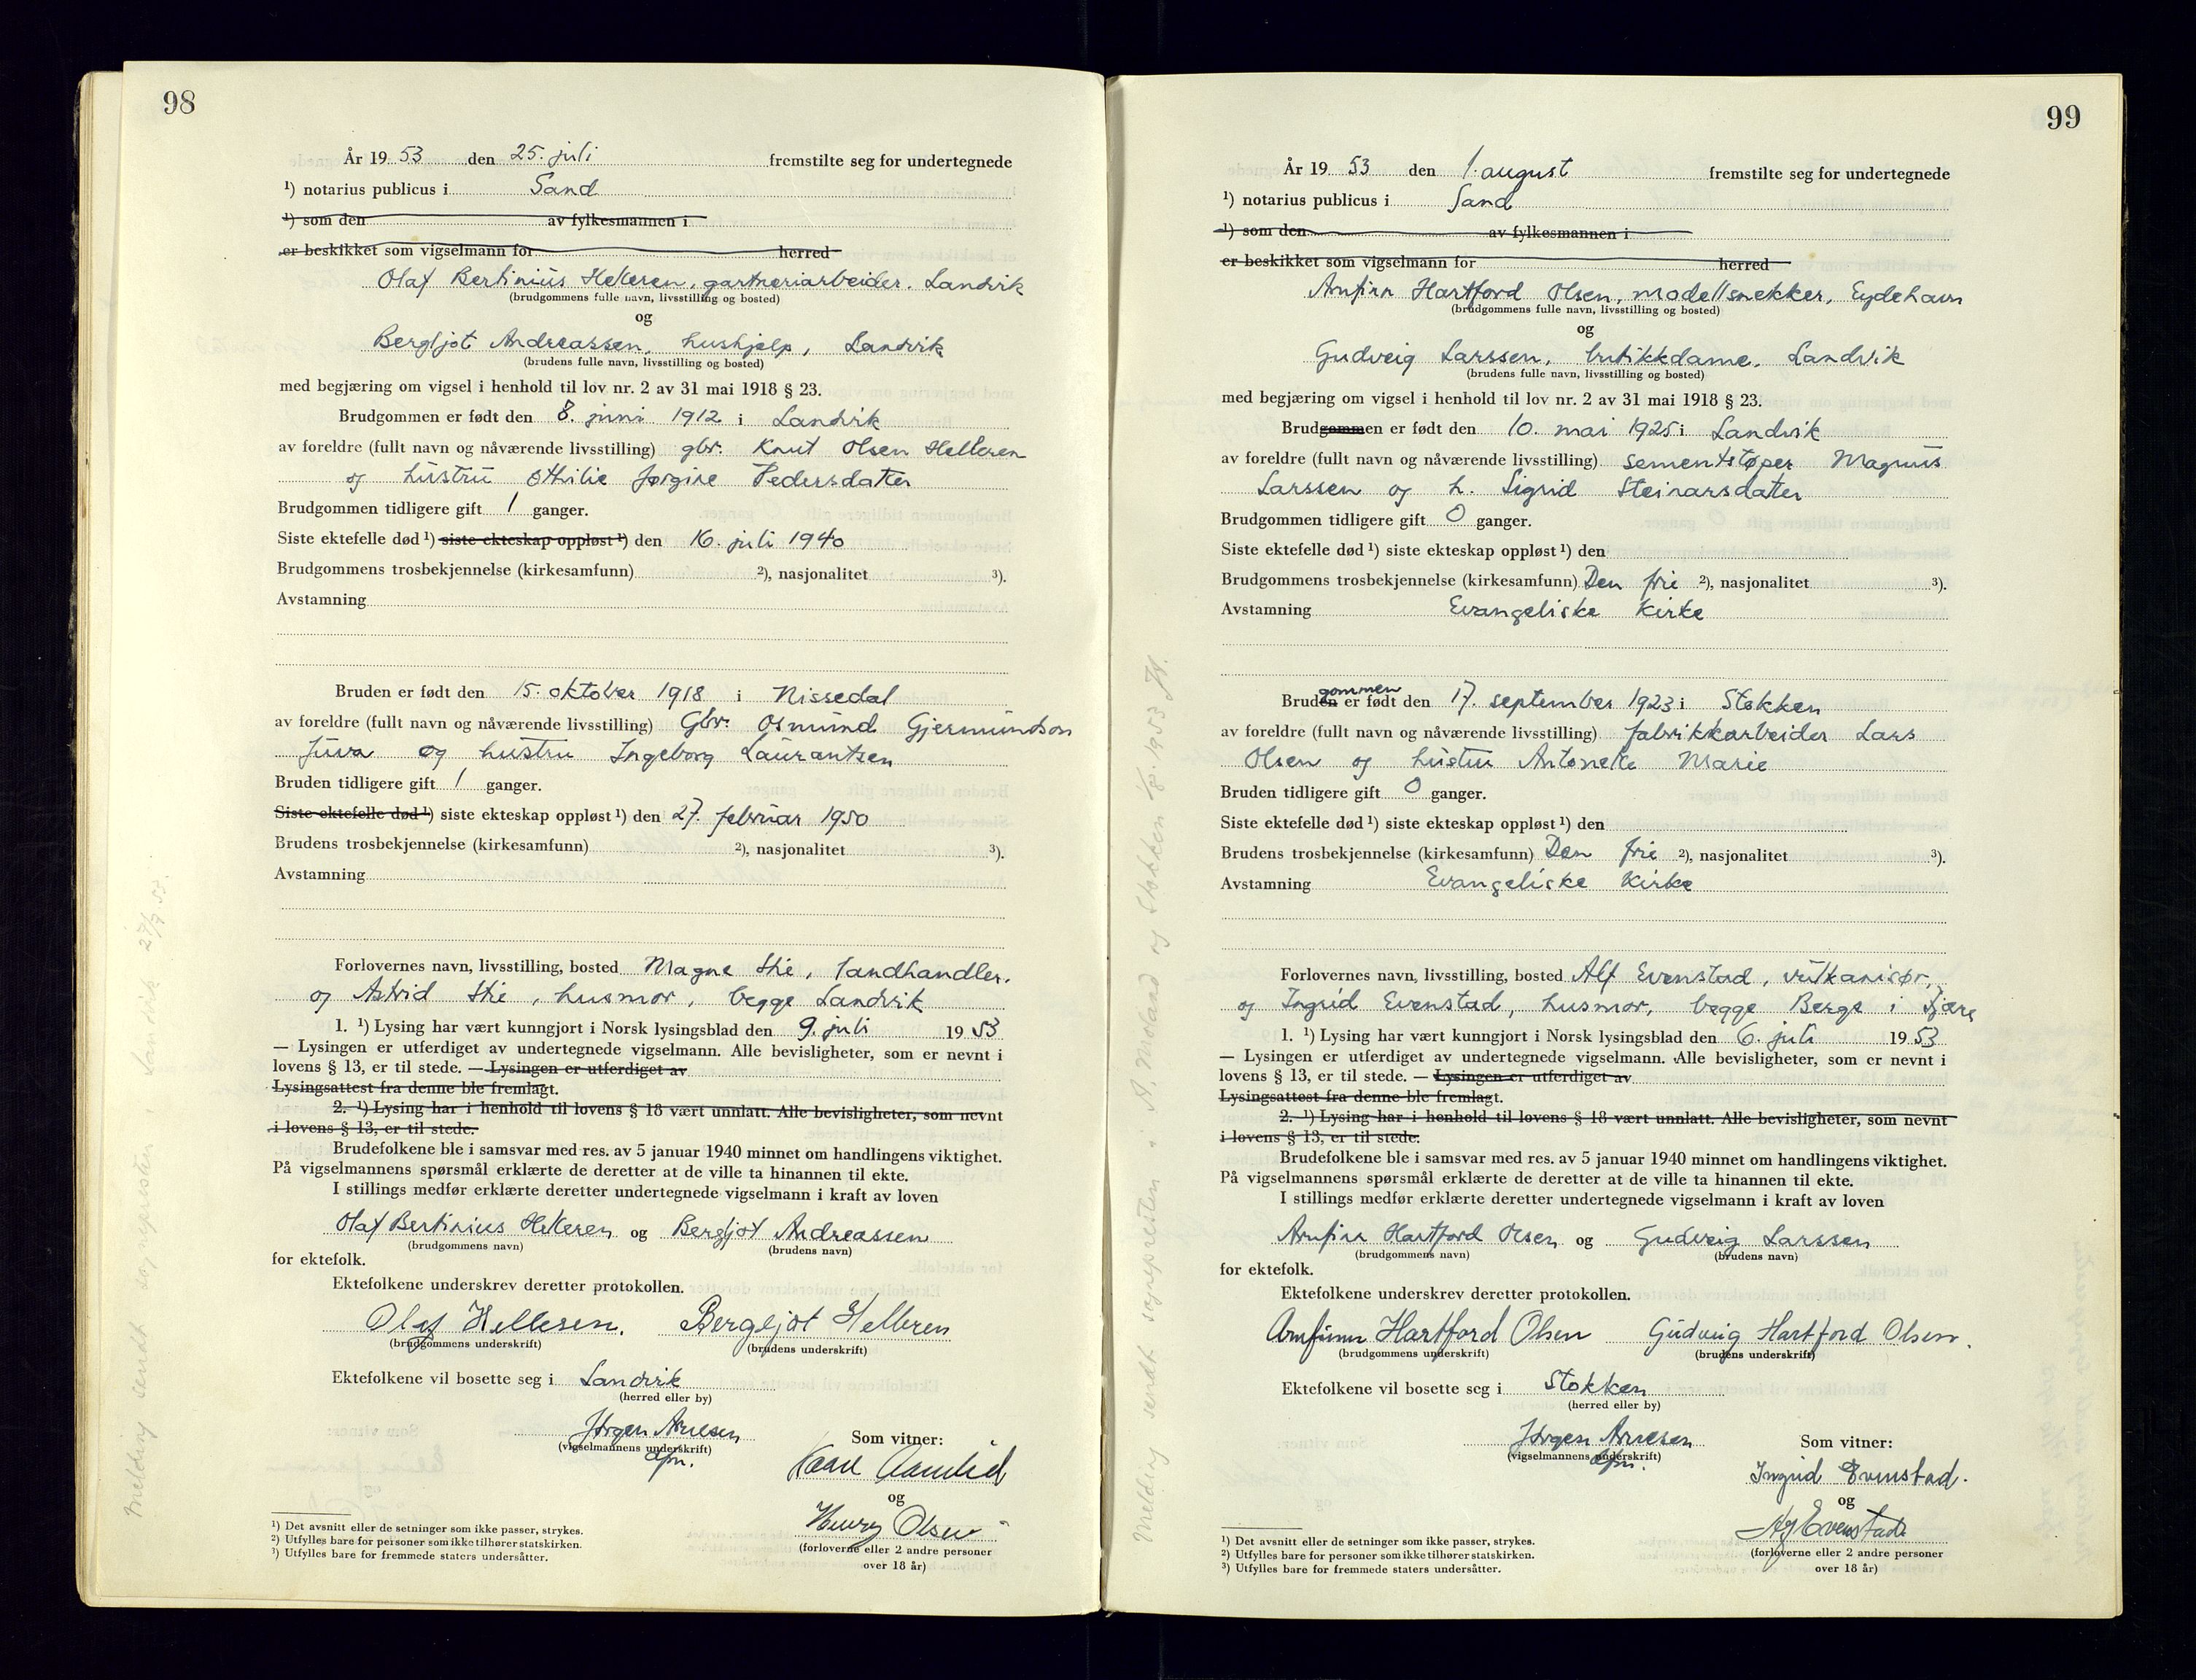 98
År 19 53 den 25. juli fremstilte seg for undertegnede
¹) notarius publicus i Sand
¹) som den av fylkesmannen i
er beskikket som vigselmann for herred
Olaf Bertinius Helleren, gartneriarbeider. Landvik
(brudgommens fulle navn, livsstilling og bosted)
og
Bergljot Andreassen, hushjelp, Landvik
(brudens fulle navn, livsstilling og bosted)
med begjæring om vigsel i henhold til lov nr. 2 av 31 mai 1918 § 23.
Brudgommen er født den 8. juni 1912 i Landvik
av foreldre (fullt navn og nåværende livsstilling) gbr. Knut Olsen Helleren
og hustru Othilie Jørgine Pedersdatter
Brudgommen tidligere gift 1 ganger.
Siste ektefelle død ¹) siste ekteskap oppløst ¹) den 16. juli 1940
Brudgommens trosbekjennelse (kirkesamfunn) ²), nasjonalitet ³).
Avstamning
Bruden er født den 15. oktober 1918 i Nissedal
av foreldre (fullt navn og nåværende livsstilling) Gbr. Osmund Gjermundson
Juva og hustru Ingeborg Laurantsen
Bruden tidligere gift 1 ganger.
Siste ektefelle død ¹) siste ekteskap oppløst ¹) den 27. februar 1950
Brudens trosbekjennelse (kirkesamfunn) ²), nasjonalitet ³).
Avstamning
Forlovernes navn, livsstilling, bosted Magne Stie, landhandler.
og Astrid Stie, husmor, begge Landvik
1. ¹) Lysing har vært kunngjort i Norsk lysingsblad den 9. juli 19 53
— Lysingen er utferdiget av undertegnede vigselmann. Alle bevisligheter, som er nevnt i
lovens § 13, er til stede. — Lysingen er utferdiget av
Lysingsattest fra denne ble fremlagt.
2. ¹) Lysing har i henhold til lovens § 18 vært unnlatt. Alle bevisligheter, som nevnt
i lovens § 13, er til stede.
Brudefolkene ble i samsvar med res. av 5 januar 1940 minnet om handlingens viktighet.
På vigselmannens spørsmål erklærte de deretter at de ville ta hinannen til ekte.
I stillings medfør erklærte deretter undertegnede vigselmann i kraft av loven
Olaf Bertinius Helleren og Bergljot Andreassen
(brudgommens navn) (brudens navn)
for ektefolk.
Ektefolkene underskrev deretter protokollen.
Olaf Hellesen. Bergljot Helleren
(brudgommens underskrift) (brudens underskrift)
Ektefolkene vil bosette seg i Landvik
(herred eller by)
Jørgen Arnesen
(vigselmannens underskrift)
Som vitner:
og
Henry Olsen
(forloverne eller 2 andre personer
over 18 år)
¹) Det avsnitt eller de setninger som ikke passer, strykes.
²) Utfylles bare for personer som ikke tilhører statskirken.
³) Utfylles bare for fremmede staters undersåtter.
Melding sendt sognepresten i Landvik 27/7 53.
99
År 19 53 den 1. august fremstilte seg for undertegnede
¹) notarius publicus i Sand
¹) som den av fylkesmannen i
er beskikket som vigselmann for herred
Arnfinn Hartford Olsen, modellsnekker, Eydehavn
(brudgommens fulle navn, livsstilling og bosted)
og
Gudveig Larssen, butikkdame, Landvik
(brudens fulle navn, livsstilling og bosted)
med begjæring om vigsel i henhold til lov nr. 2 av 31 mai 1918 § 23.
Brudgommen er født den 10. mai 1925 i Landvik
av foreldre (fullt navn og nåværende livsstilling) sementstøper Magnus
Larssen og h. Sigrid Steinarsdatter
Brudgommen tidligere gift 0 ganger.
Siste ektefelle død ¹) siste ekteskap oppløst ¹) den
Brudgommens trosbekjennelse (kirkesamfunn) Den frie ²), nasjonalitet ³).
Avstamning Evangeliske Kirke
gommen
Bruden er født den 17. september 1923 i Stokken
av foreldre (fullt navn og nåværende livsstilling) fabrikkarbeider Lars
Olsen og hustru Antonette Marie
Bruden tidligere gift 0 ganger.
Siste ektefelle død ¹) siste ekteskap oppløst ¹) den
Brudens trosbekjennelse (kirkesamfunn) Den frie ²), nasjonalitet ³).
Avstamning Evangeliske Kirke
Forlovernes navn, livsstilling, bosted Alf Evenstad, vulkanisør,
og Ingrid Evenstad, husmor, begge Berge i Fjære
1. ¹) Lysing har vært kunngjort i Norsk lysingsblad den 6. juli 19 53
— Lysingen er utferdiget av undertegnede vigselmann. Alle bevisligheter, som er nevnt i
lovens § 13, er til stede. — Lysingen er utferdiget av
Lysingsattest fra denne ble fremlagt.
2. ¹) Lysing har i henhold til lovens § 18 vært unnlatt. Alle bevisligheter, som nevnt
i lovens § 13, er til stede.
Brudefolkene ble i samsvar med res. av 5 januar 1940 minnet om handlingens viktighet.
På vigselmannens spørsmål erklærte de deretter at de ville ta hinannen til ekte.
I stillings medfør erklærte deretter undertegnede vigselmann i kraft av loven
Arnfinn Hartford Olsen og Gudveig Larssen
(brudgommens navn) (brudens navn)
for ektefolk.
Ektefolkene underskrev deretter protokollen.
Arnfinn Hartford Olsen Gudveig Hartford Olsen.
(brudgommens underskrift) (brudens underskrift)
Ektefolkene vil bosette seg i Stokken
(herred eller by)
Jørgen Arnesen
(vigselmannens underskrift)
Som vitner:
Ingrid Evenstad.
og
Alf Evenstad
(forloverne eller 2 andre personer
over 18 år)
¹) Det avsnitt eller de setninger som ikke passer, strykes.
²) Utfylles bare for personer som ikke tilhører statskirken.
³) Utfylles bare for fremmede staters undersåtter.
Melding sendt sognepresten i A. Moland og Stokken 1/8. 1953